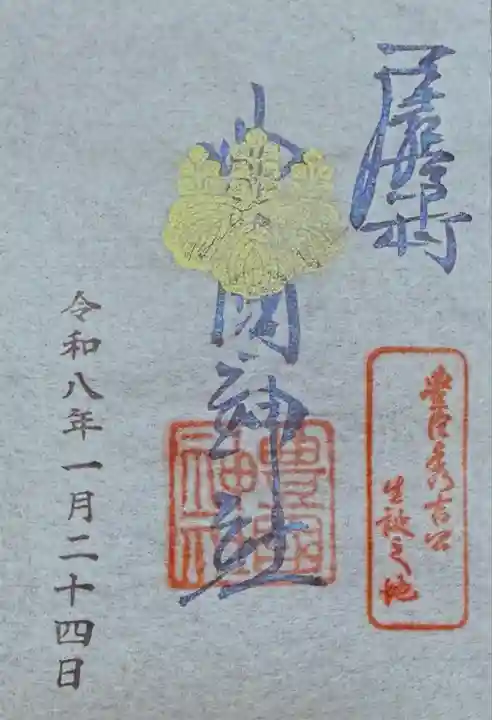 尾張中村
豊臣秀吉公
生誕之地
豊国神社
豊國
神社
令和八年一月二十四日